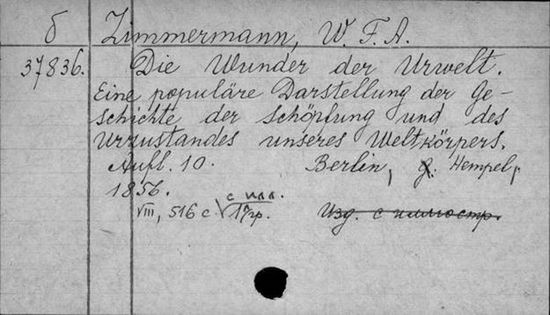 б Zimmermann, W. F. A.
37836. Die Wunder der Urwelt.
Eine populäre Darstellung der Ge-
schichte der Schöpfung und des
Urzustandes unseres Weltkörpers.
Aufl. 10. Berlin, G. Hempel,
1856.
с илл.
VIII, 516 с 17 гр.
Изд. с иллюстр.